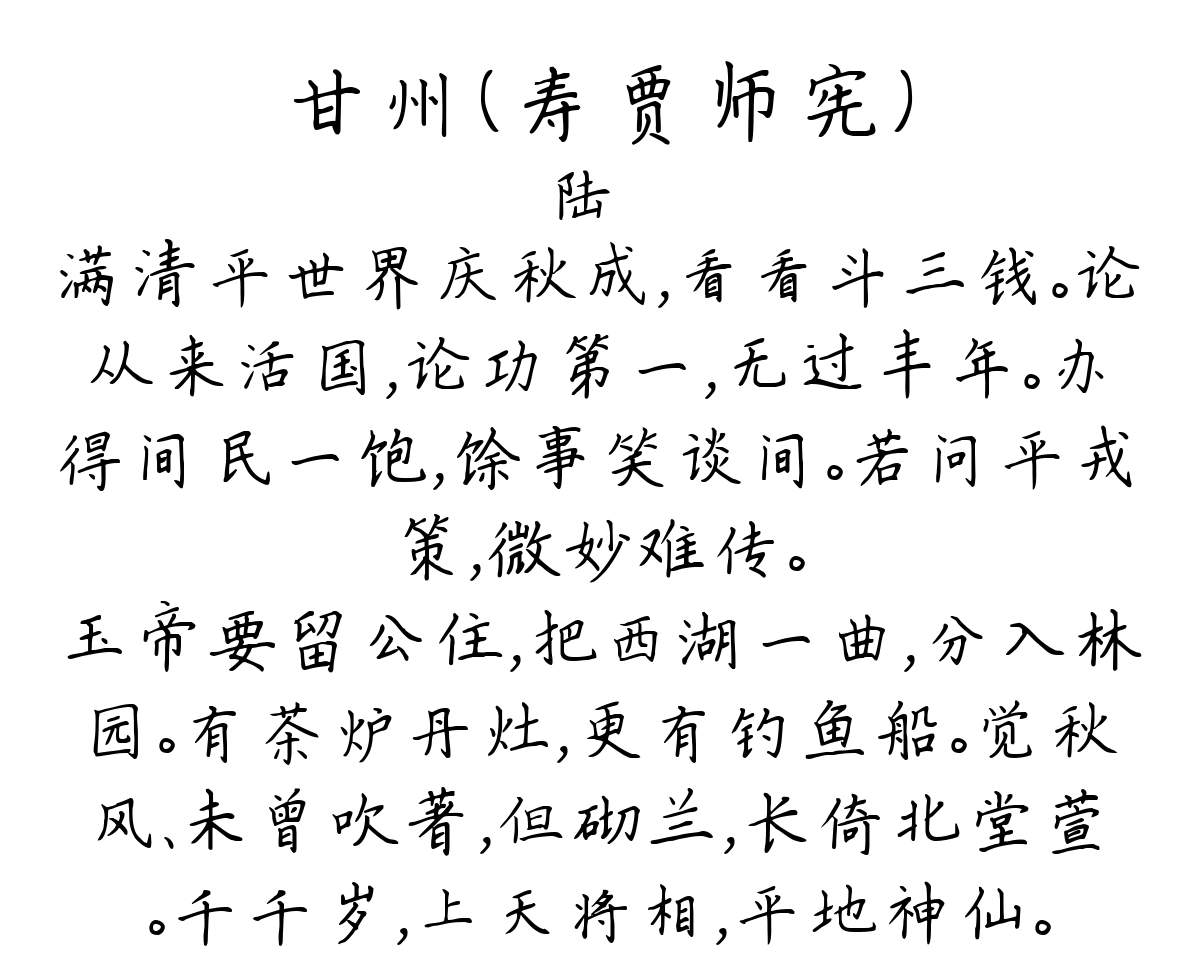 甘州(寿贾师宪)
陆
满清平世界庆秋成,看看斗三钱。论
从来活国,论功第一,无过丰年。办
得间民一饱,馀事笑谈间。若问平戎
策,微妙难传。
玉帝要留公住,把西湖一曲,分入林
园。有茶炉丹灶,更有钓鱼船。觉秋
风、未曾吹著,但砌兰,长倚北堂萱
。千千岁,上天将相,平地神仙。